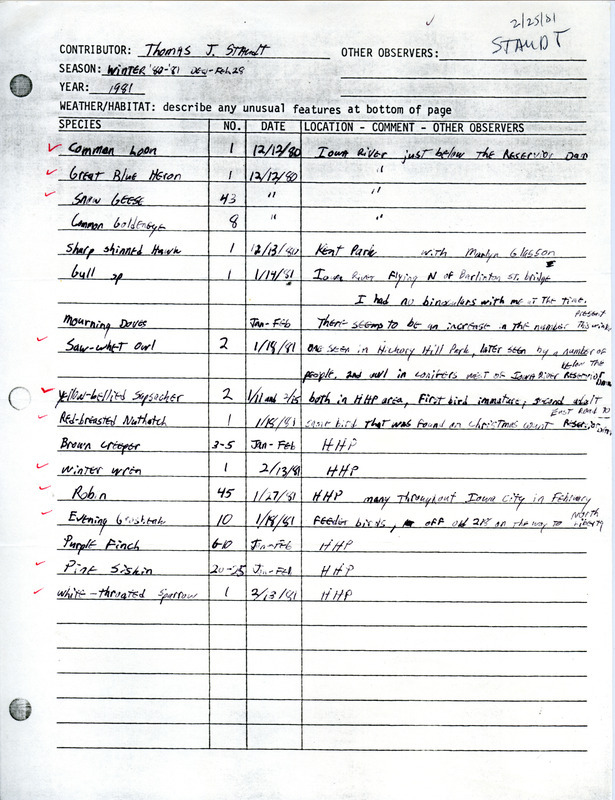 2/25/81
STAUDT
CONTRIBUTOR: Thomas J. Staudt OTHER OBSERVERS:
SEASON: Winter '80-'81 Dec-Feb.28
YEAR: 1981
WEATHER/HABITAT: describe any unusual features at bottom of page
SPECIES NO. DATE LOCATION - COMMENT - OTHER OBSERVERS
Common Loon 1 12/12/80 Iowa River just below the Reservior Dam
Great Blue Heron 1 12/12/80 "
Snow Geese 43 " "
Common Goldeneye 8 " "
Sharp shinned Hawk 1 12/13/80 Kent Park with
Gull sp 1 1/14/81 Iowa River Flying N of Burlinton St. bridge
I had no binoculars with me at the time.
Mourning Doves Jan-Feb There seems to be an increase in the number present this winter
Saw-whet Owl 2 1/18/81 one seen in Hickory Hill Park, later seen by a number of
people, and owl in conifers west of Iowa River below the Reservior Dam
Yellow-bellied Sapsucker 2 1/11 and both in HHP area, First bird immature; second adult
Red-breasted Nuthatch 1 1/18/81 same bird that was found on Christmas count East Road to Reservior
Brown creeper 3-5 Jan-Feb HHP
Winter wren 1 2/13/81 HHP
Robin 45 1/27/81 HHP many throughout Iowa City in February
Evening Grosbeak 10 1/18/81 Feeder birds, off old 218 on the way to North Liberty
Purple Finch 6-10 Jan-Feb HHP
Pine Siskin 20-25 Jan-Feb HHP
White-throated Sparrow 1 2/13/81 HHP